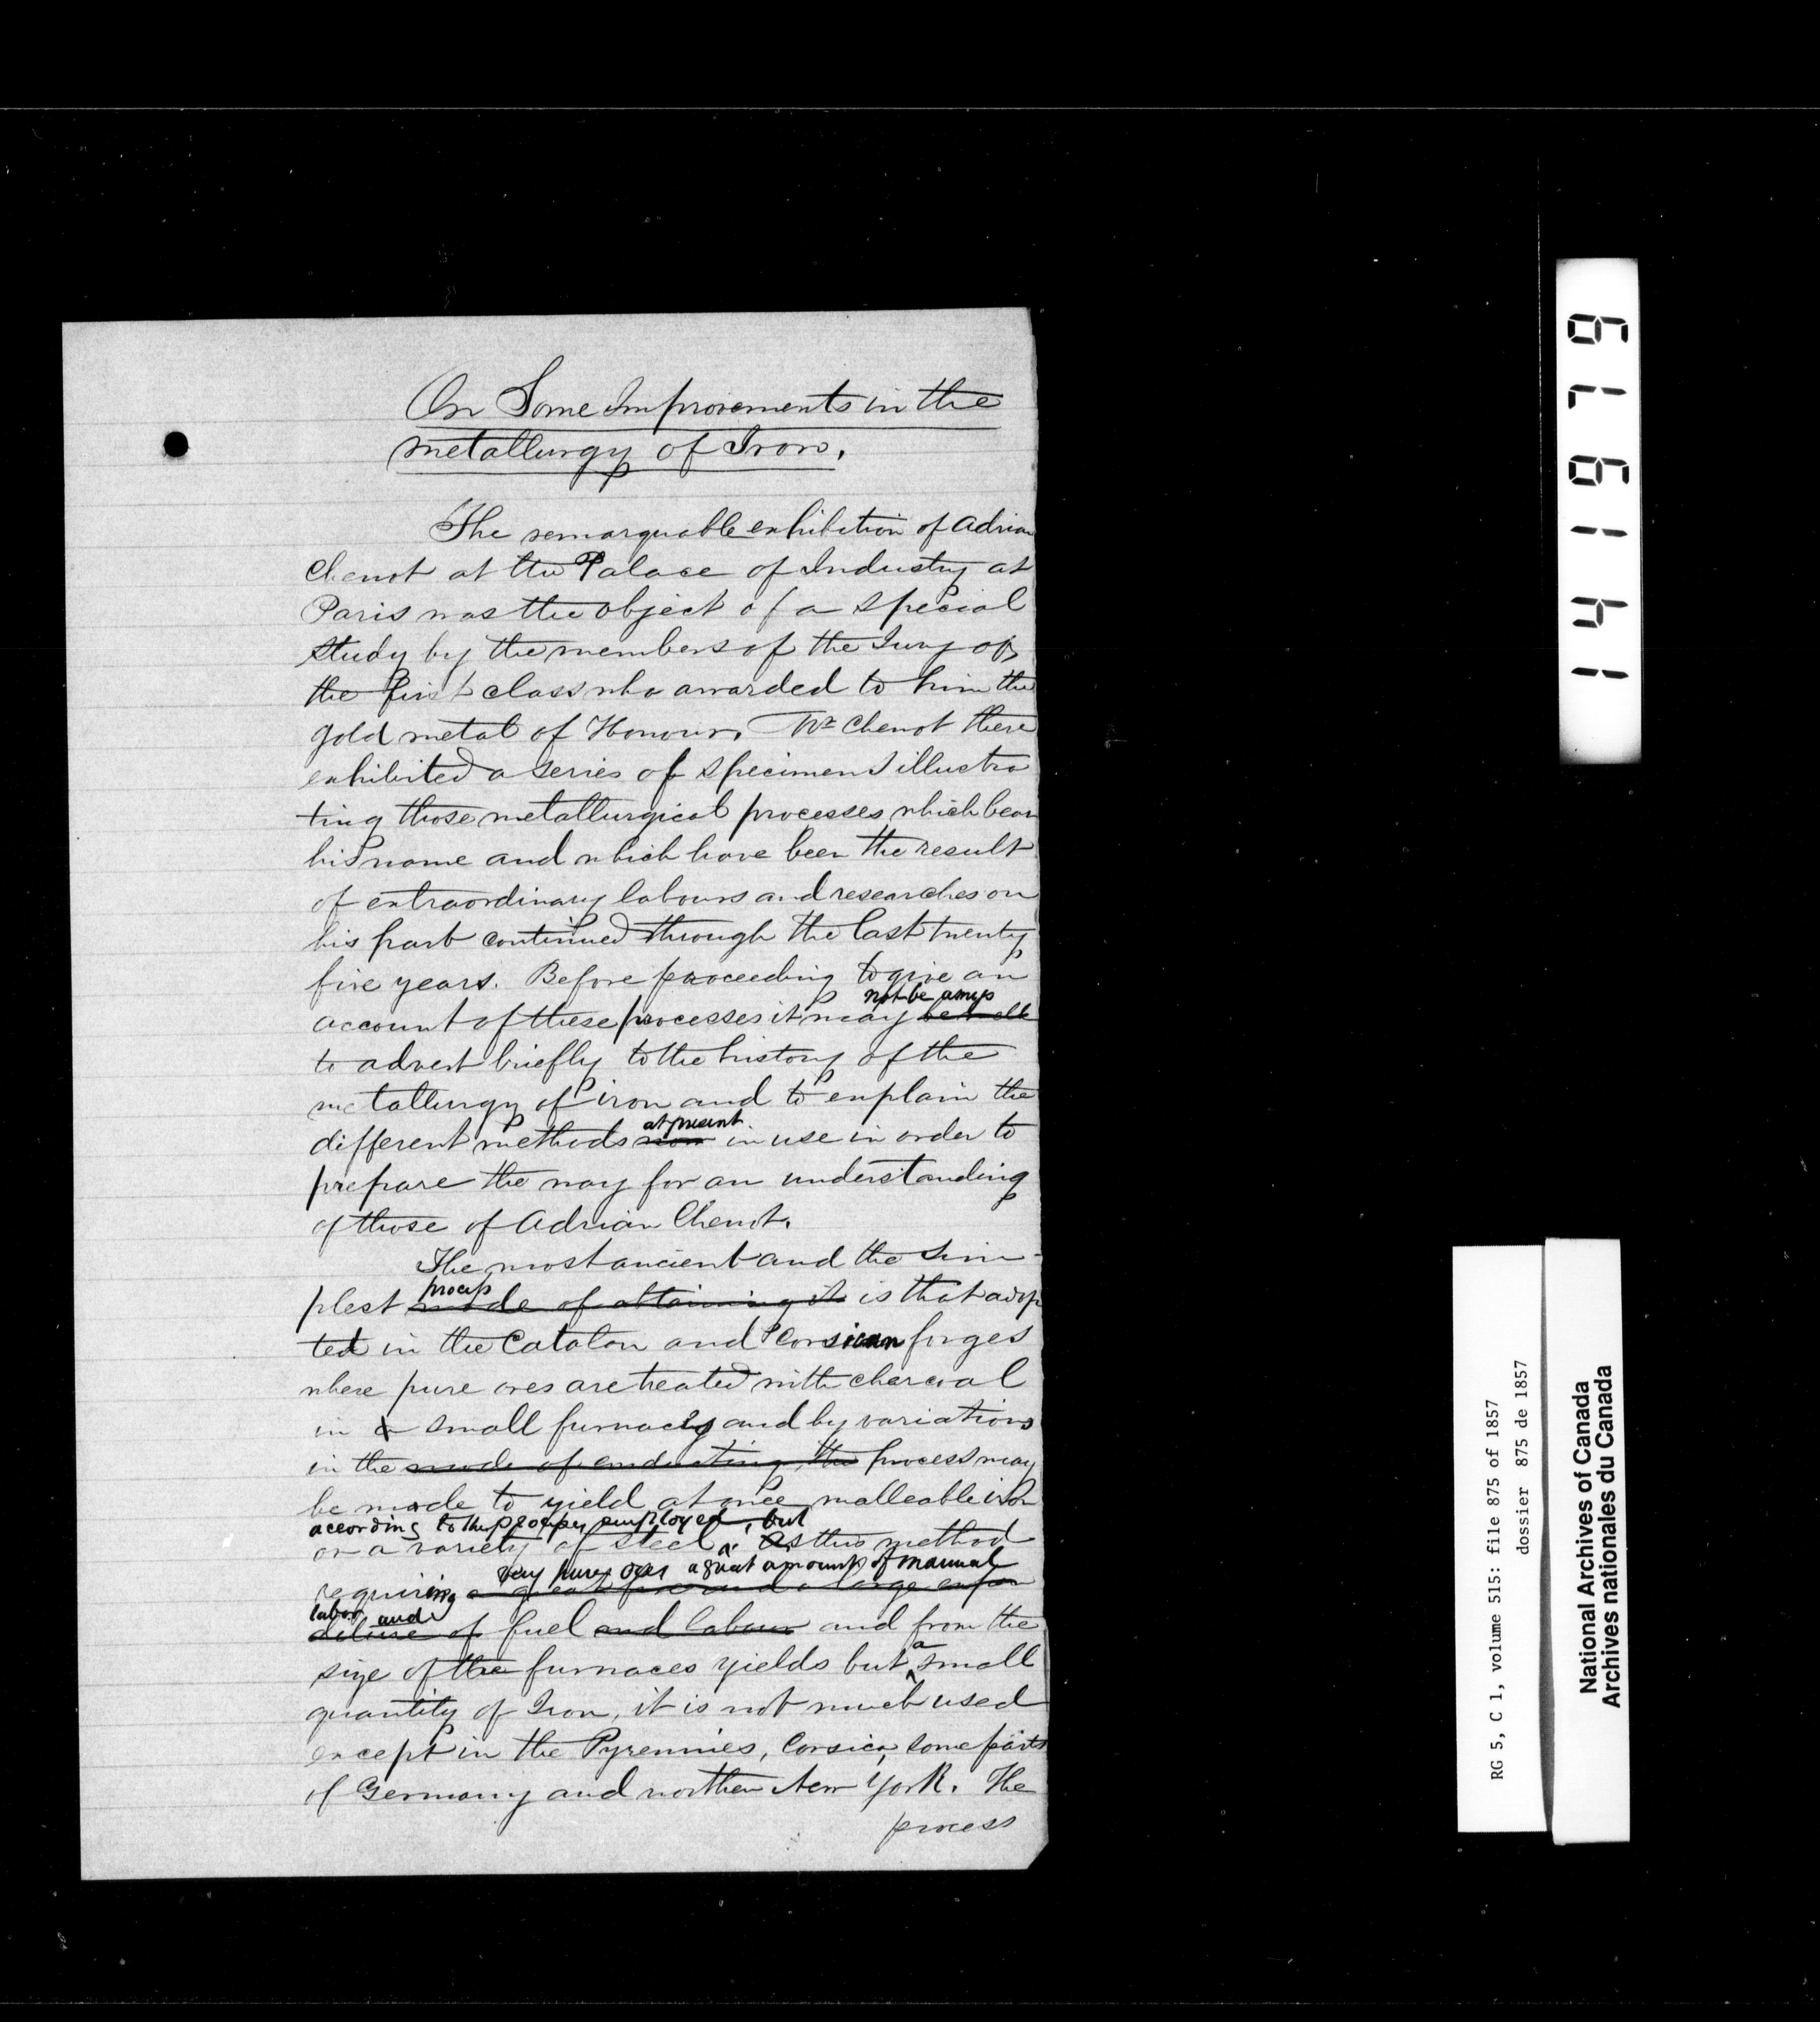 On Some Improvements in the
metallurgy of Iron.
The remarquable exhibition of Adrian
Chenot at the Palace of Industry at
Paris was the object of a special
study by the members of the Jury of
the first class who awarded to him the
gold metal of Honour. Mr Chenot there
exhibited a series of specimens illustra
ting those metallurgical processes which bear
his name and which have been the result
of extraordinary labours and researches on
his part continued through the last twenty
five years. Before proceeding to give an
not be amiss
account of these processes it may be well
to advert briefly to the history of the
metallurgy of iron and to explain the
at present
different methods now in use in order to
prepare the way for an understanding
of those of Adrian Chenot.
The most ancient and the sim-
process
plest mode of obtaining it is that adop
ted in the Catalan and Corsican forges
where pure ores are treated with charcoal
in a small furnaces and by variations
in the mode of conducting the process may
be made to yield at once malleable iron
according to the process employed, but
or a variety of steel. As this method
very pure ores a great amount of manual
requiring a great and a large expen
labor and
diture of fuel and labour and from the
a
size of the furnaces yields but small
quantity of Iron, it is not much used
except in the Pyrennies, Corsica, some parts
of Germany and northen New York. The
process
141619
RG 5, C 1, volume 515: file 875 of 1857
dossier 875 de 1857
National Archives of Canada
Archives nationales du Canada